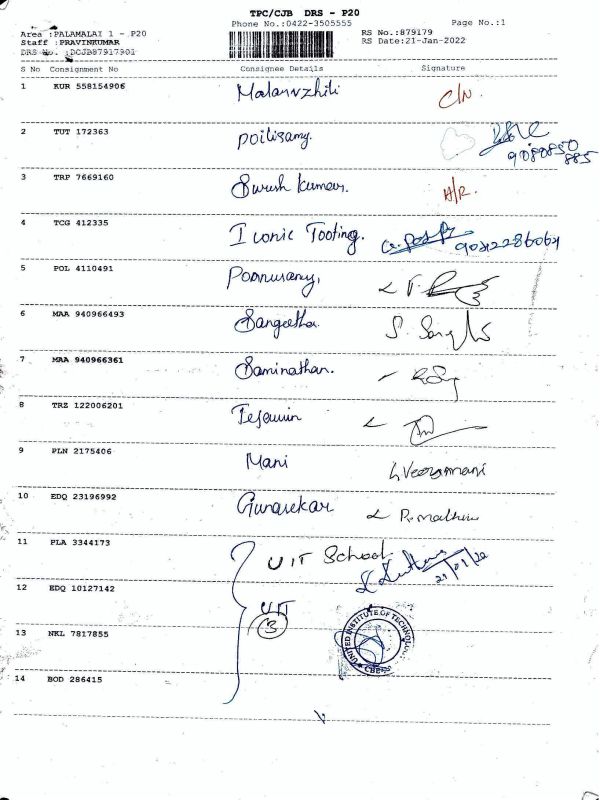 TPC/CJB DRS - P20
Phone No.:0422-3505555 Page No.:1
Area :PALAMALAI 1 - P20 RS No.:879179
Staff :PRAVINKUMAR RS Date:21-Jan-2022
DRS No. :DCJB87917901
S No Consignment No Consignee Details Signature
1 KUR 558154906 Malarvzhili C/N.
2 TUT 172363 Poilisamy. 9080850
885
3 TRP 7669160 Suresh Kumar. A/R.
4 TCG 412335 Iconic Tooting. 9042286064
5 POL 4110491 Ponnusamy,
6 MAA 940966493 Sangeetha S. Sang
7 MAA 940966361 Saminathan.
8 TRZ 122006201 Tejamin
9 PLN 2175406 Mani Veeramani
10 EDQ 23196992 Gunasekar P. Mathew
11 PLA 3344173 UIT School
21/01/22
12 EDQ 10127142 UIT
3
13 NKL 7817855 UNITED INSTITUTE OF TECHNOLOGY
14 BOD 286415